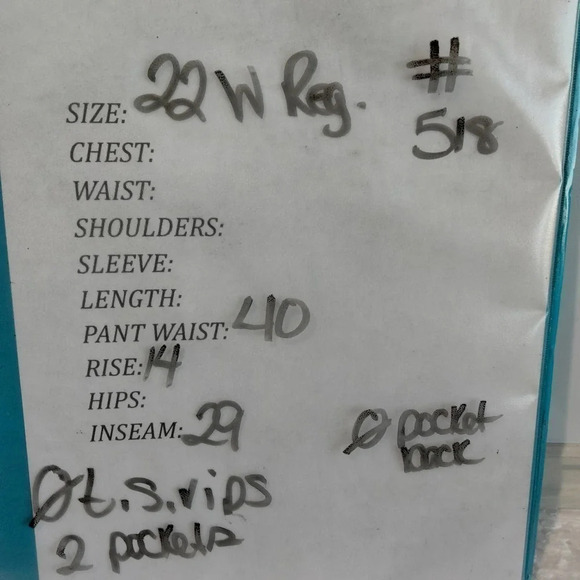 SIZE: 22 W Reg. #
518
CHEST:
WAIST:
SHOULDERS:
SLEEVE:
LENGTH:
PANT WAIST: 40
RISE: 14
HIPS:
INSEAM: 29
Ø pocket
back
Øt.s.rips
2 pockets